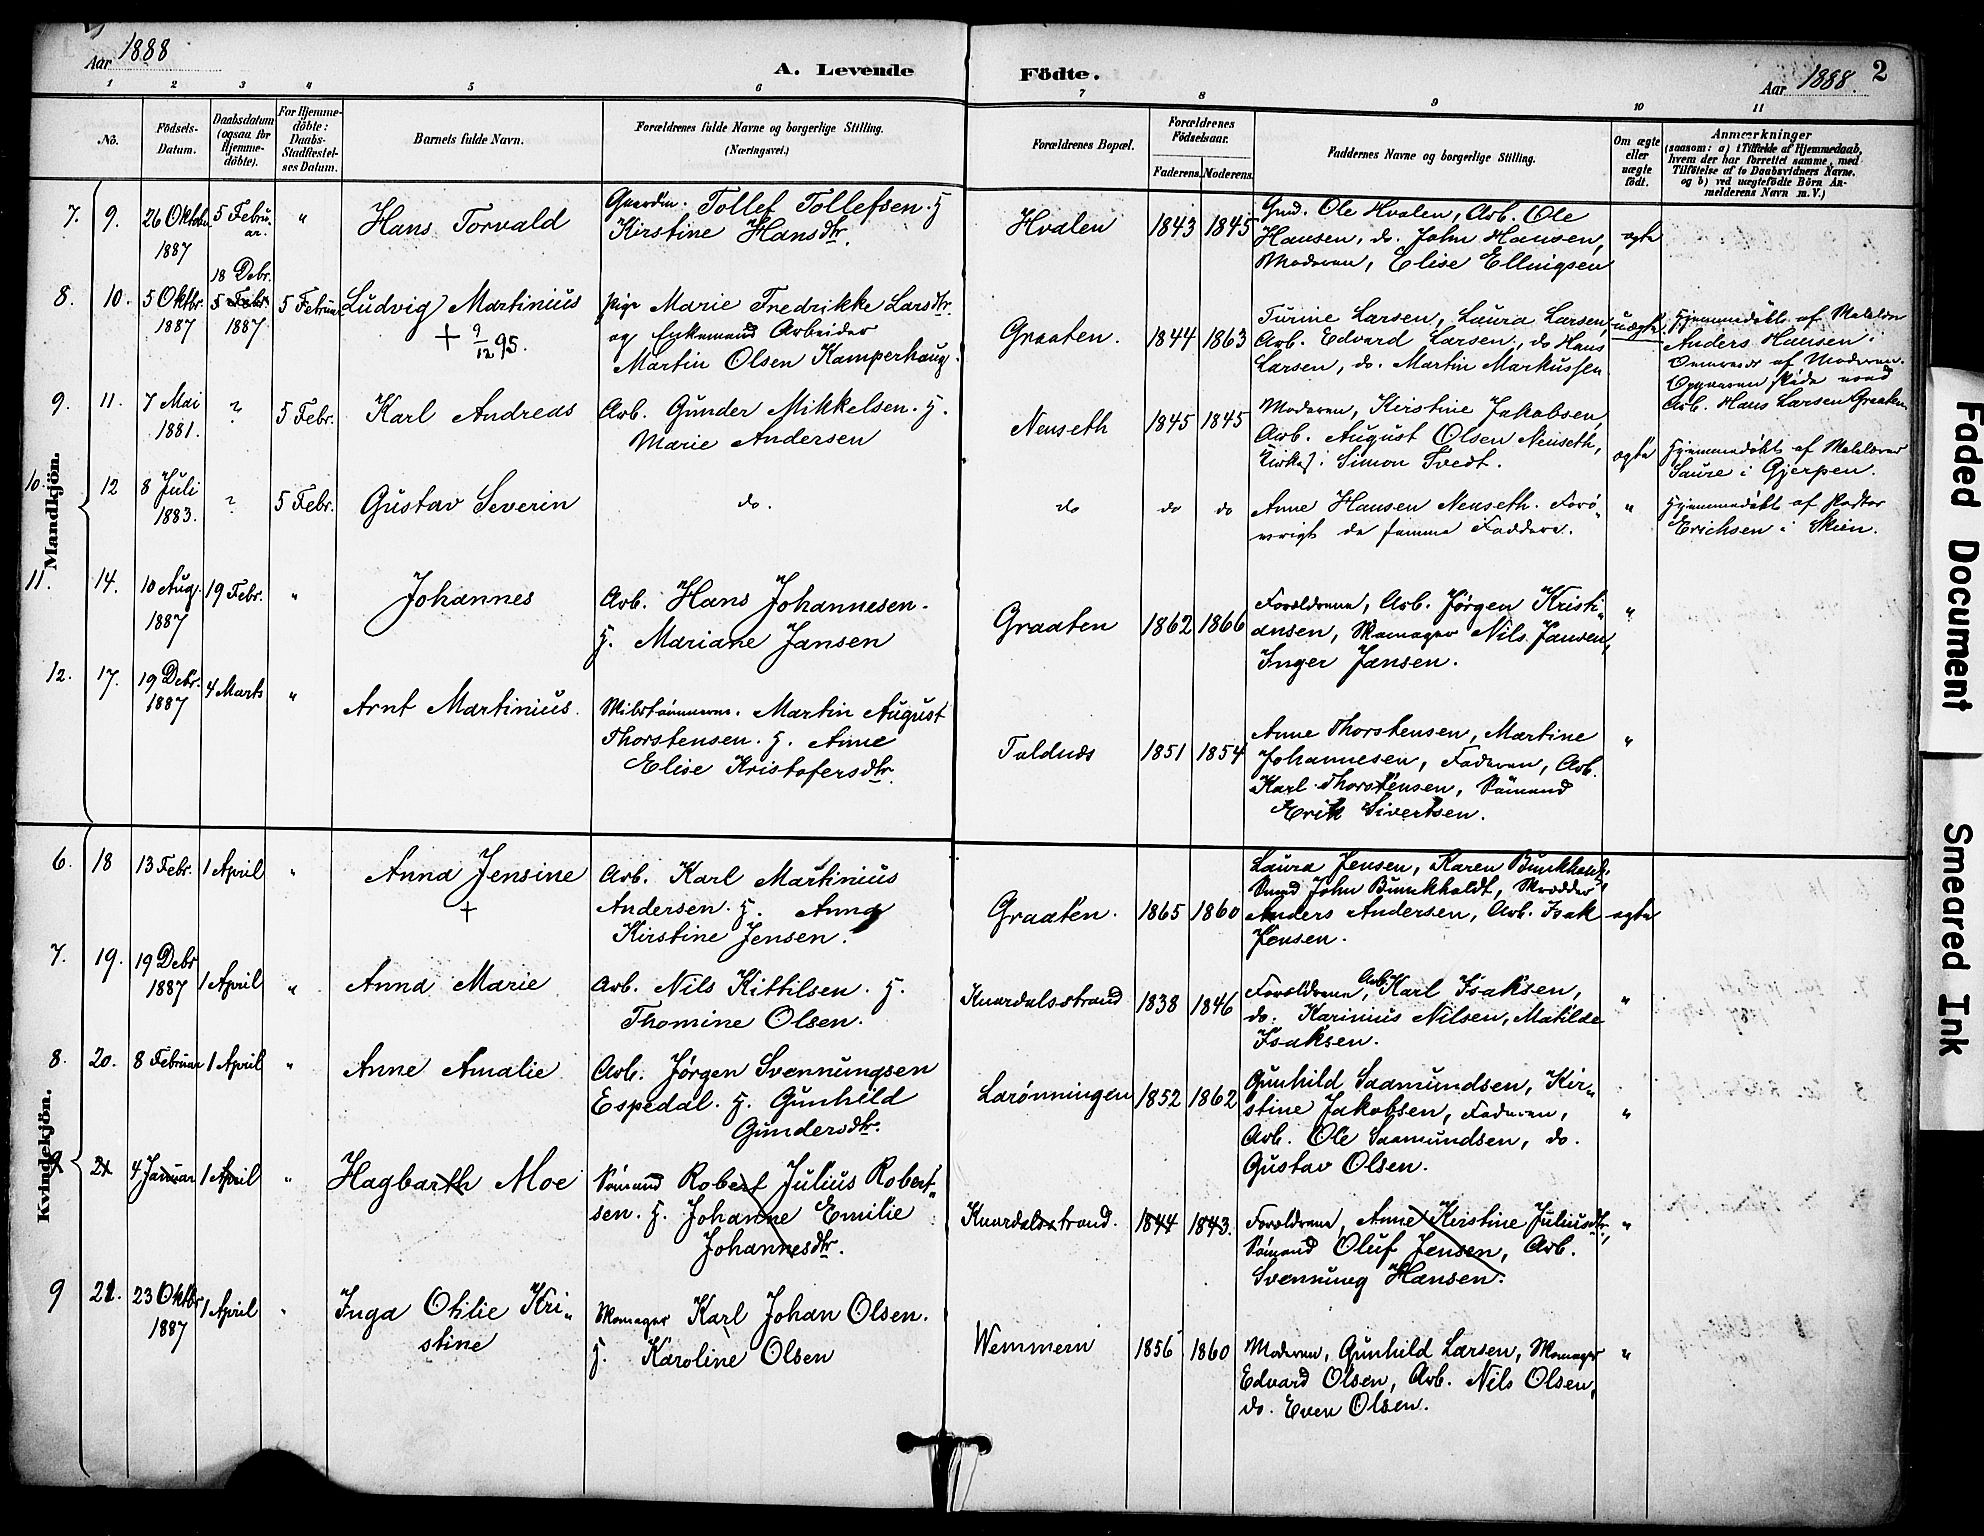 Aar 1888
A. Levende Födte.
Aar 1888. 2
1 2 3 4 5 6 7 8 9 10 11
No.
Födsels-
Datum.
Daabsdatum
(ogsaa for
Hjemme-
döbte).
For Hjemme-
döbte:
Daabs-
Stadfæstel-
ses Datum.
Barnets fulde Navn.
Forældrenes fulde Navne og borgerlige Stilling.
(Næringsvei.)
Forældrenes Bopæl.
Forældrenes
Födselsaar.
Faderens. Moderens.
Faddernes Navne og borgerlige Stilling.
Om ægte
eller
uægte
födt.
Anmærkninger
(saasom: a) i Tilfælde af Hjemmedaab,
hvem der har forrettet samme, med
Tilföielse af to Daabsvidners Navne.
og b) ved uægtefödte Börn An-
melderens Navn m. V.)
Mandkjön.
7. 9. 26 Oktober 1887 5 Febru-
ar. " Hans Torvald
Gaardm. Tollef Tollefsen. H
Kirstine Hansdtr.
Hvalen 1843 1845
Gmd. Ole Hvalen, Arb. Ole
Hansen, do. John Hansen,
Moderen, Elise Ellingsen
ægte
8. 10. 5 Oktbr. 1887
18 Debr.
5 Febr.
1887.
5 Februar Ludvig Martinius
+ 9/12 95.
pige Marie Fredrikke Larsdtr.
og Enkemand Arbeider
Martin Olsen Kamperhaug.
Graaten. 1844 1863
Turine Larsen, Laura Larsen,
Arb. Edvard Larsen, do Hans
Larsen, do. Martin Markussen
uægte.
Hjemmedøbt af
Anders Hansen i
af Moderen.
Opgaven skede ved
Arb. Hans Larsen Graaten
9. 11. 7 Mai 1881. ? 5 Febr. Karl Andreas
Arb. Gunder Mikkelsen. H.
Marie Andersen
Neuseth 1845 1845
Moderen, Kirstine Jakobsen,
Arb. August Olsen Neuseth,
Kirkes. Simon Tvedt.
ægte
Hjemmedøbt af
Saure i Gjerpen.
10. 12 8 Juli 1883. ? 5 Febr. Gustav Severin
do.
do do do
Anne Hansen Neuseth. Forø-
vrigt de samme Faddere.
"
Hjemmedøbt af Pastor
Erichsen i Skien.
11. 14. 10 Aug. 1887 19 Febr. " Johannes
Arb. Hans Johannesen.
H. Mariane Jansen
Graaten 1862 1866
Forældrene, Arb. Jørgen Kristi-
ansen, Skomager Nils Jansen,
Inger Jansen.
"
12. 17. 19 Debr. 1887 4 Marts " Arnt Martinius.
Martin August
Thorstensen. H. Anne
Elise Kristofersdtr.
Toldnes 1851 1854
Anne Thorstensen, Martine
Johannesen, Faderen, Arb.
Karl Thorstensen, Sömand
Erik Sivertsen.
"
Kvindekjön.
6. 18 13 Febr. 1 April " Anna Jensine
+
Arb. Karl Martinius
Andersen. H. Anna
Kirstine Jensen.
Graaten. 1865 1860
Laura Jensen, Karen Bunkholdt,
Smed John Bunkholdt, Skrædder
Anders Andersen, Arb. Isak
Jensen.
ægte
7. 19. 19 Debr 1887 1 April " Anna Marie
Arb. Nils Kittilsen. H.
Thomine Olsen.
Knardalsstrand 1838 1846
Forældrene, Arb. Karl Isaksen,
do. Karinius Nilsen, Matilde
Isaksen.
"
8. 20. 8 Februar 1 April " Anne Amalie
Arb. Jørgen Svennungsen
Espedal. H. Gunhild
Gundersdtr.
Larönningen 1852 1862
Gunhild Saamundsen, Kir-
stine Jakobsen, Faderen,
Arb. Ole Saamundsen, do.
Gustav Olsen.
"
9 21 4 Januar 1 April " Hagbarth Moe
Sømand Robert Julius Robert-
sen. H. Johanne Emilie
Johannesdtr.
Knardalsstrand. 1844 1843.
Forældrene, Anne Kirstine Juliusdtr.,
Sømand Oluf Jensen, Arb.
Svennung Hansen.
"
9 21. 23 Oktbr 1887 1 April " Inga Otilie Kri-
stine
Skomager Karl Johan Olsen.
H. Karoline Olsen
Wemmern 1856 1860
Moderen, Gunhild Larsen, Skomager
Edvard Olsen, Arb. Nils Olsen,
do. Even Olsen.
"
Faded Document
Smeared Ink